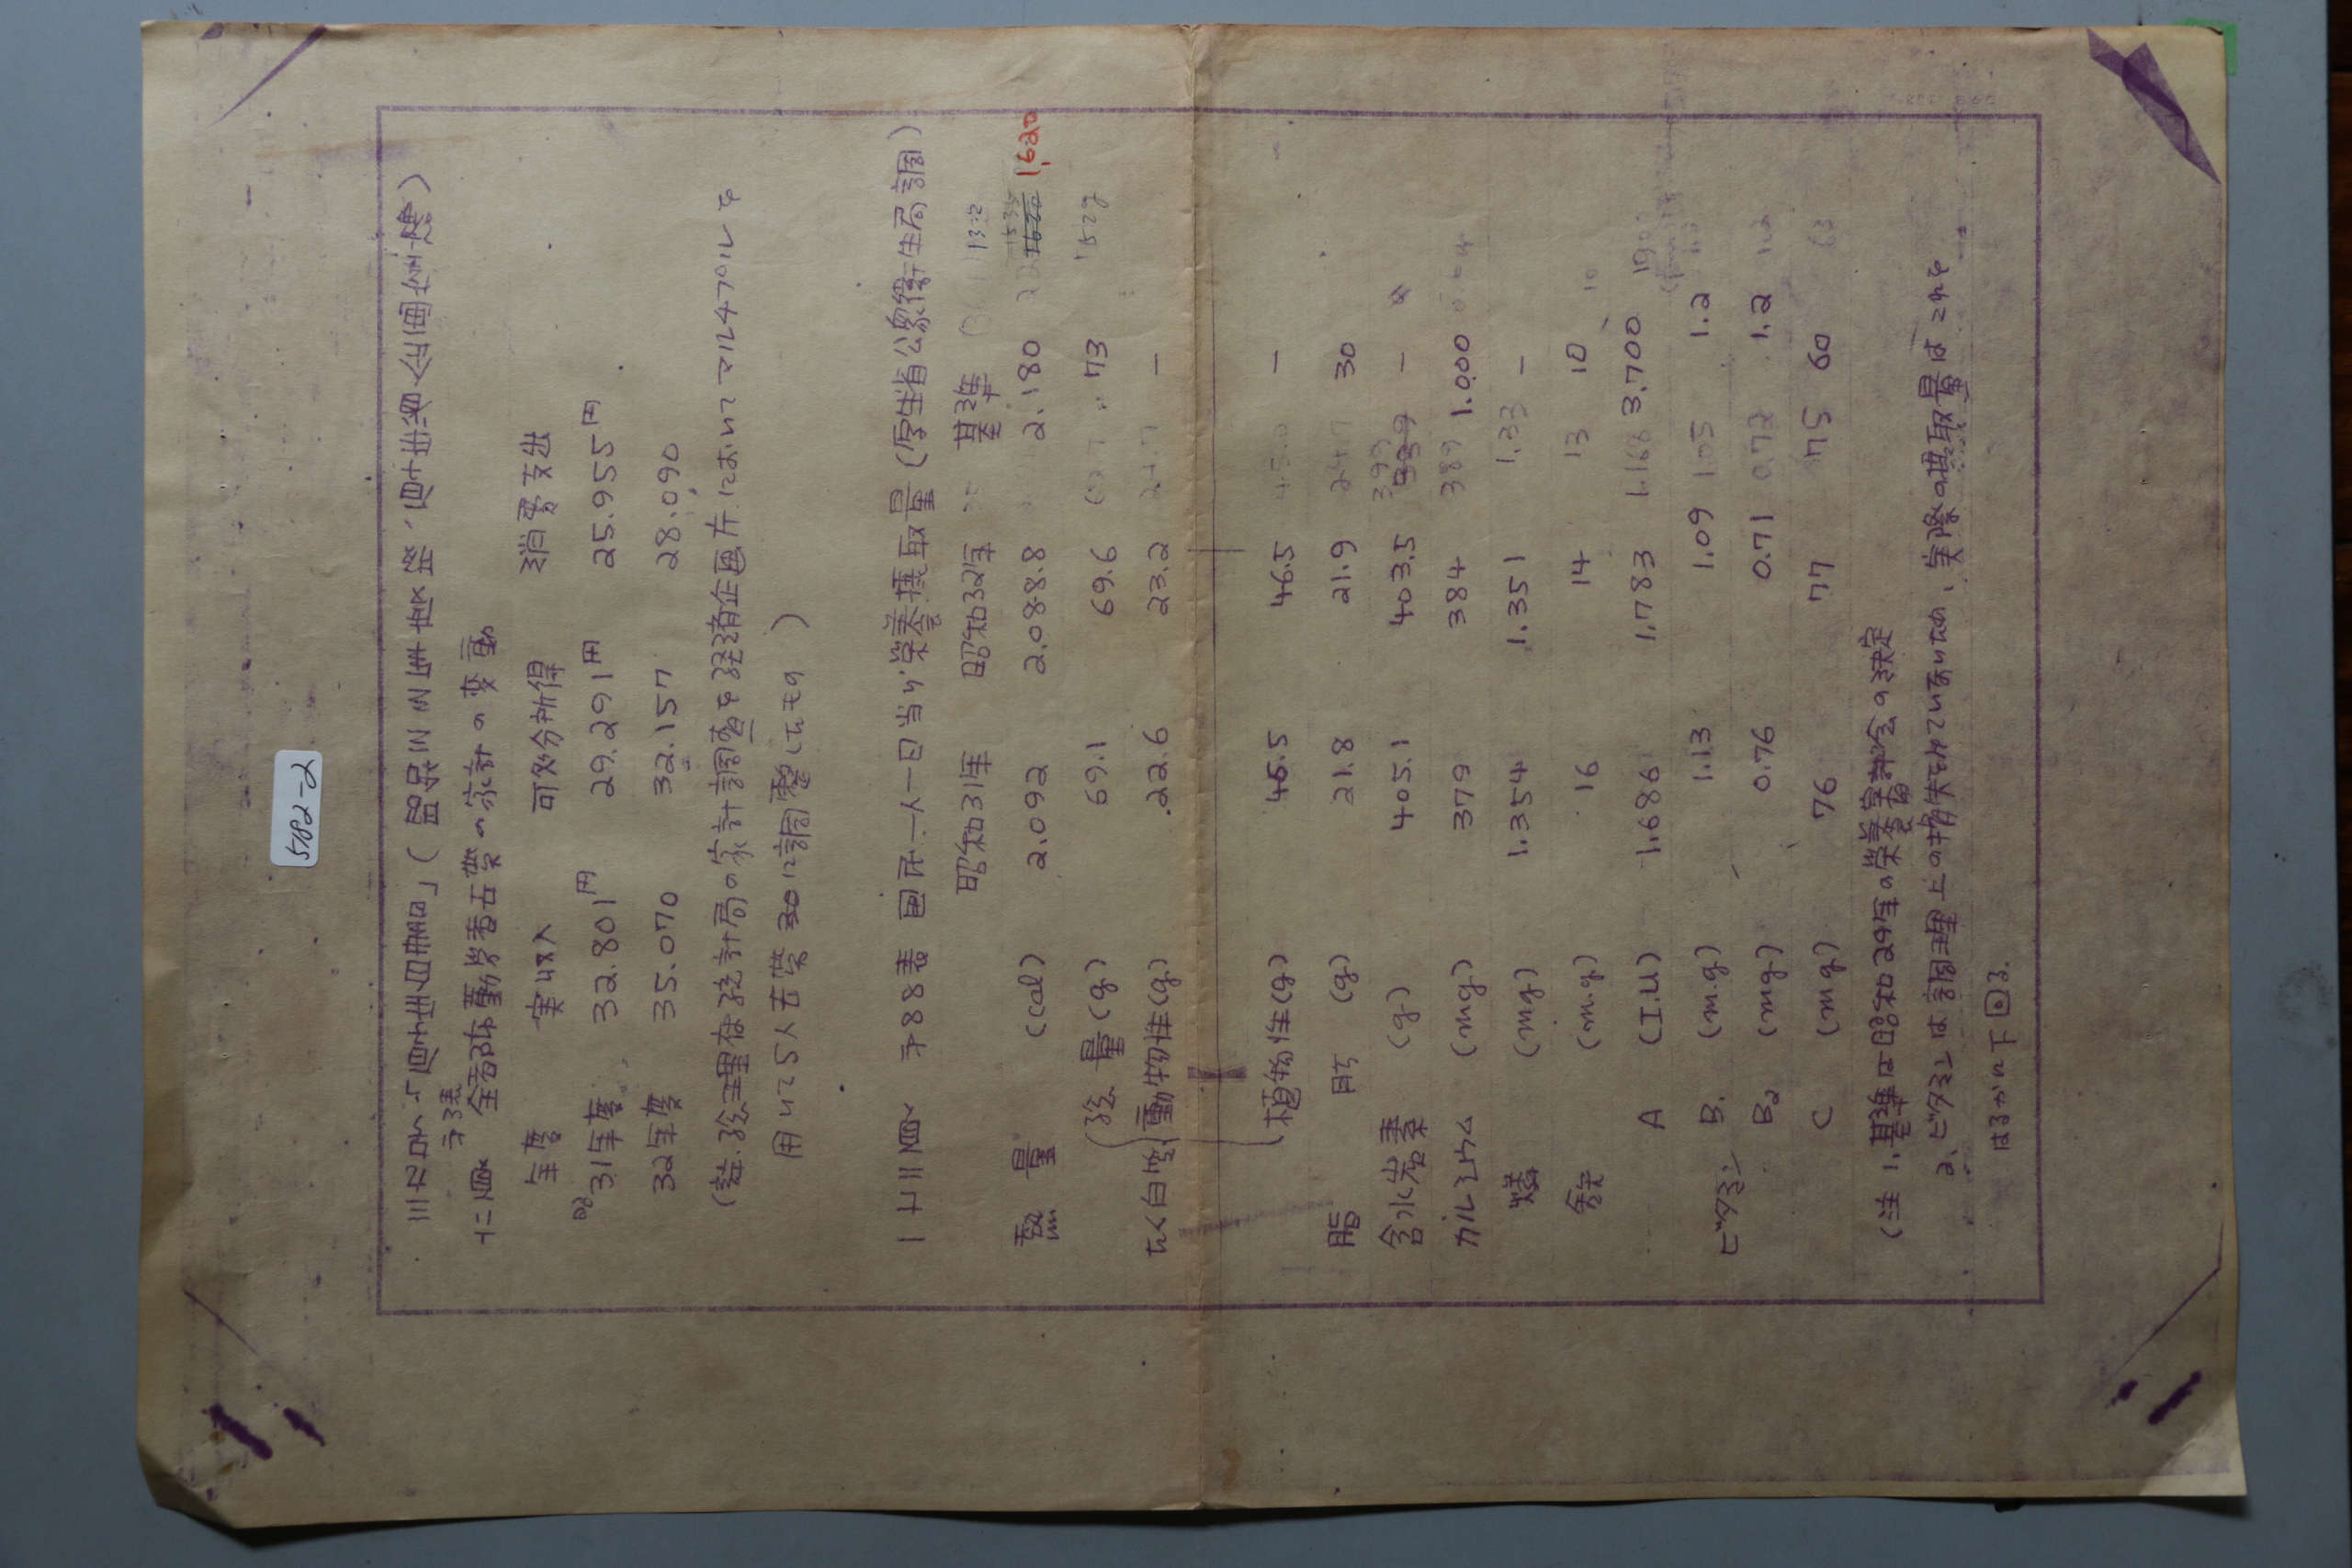 5782-2
十二頁 全都市勤労者世帯の家計の変動
年度 実収入 可処分所得 消費支出
昭31年度 32.801円 29.291円 25.955円
32年度 35.070 32.157 28.090
(註.総理府統計局の家計調査を経済企画庁においてマルチプルを
用いて5人世帯30に調整したもの)
一七三頁 才88表 国民一人一日当り栄養摂取量(厚生省公衆衛生局調)
昭和31年 昭和32年 基準
熱量 (cal) 2.092 2.088.8 2.180 1,620
総量(g) 69.1 69.6 73
たん白質 動物性(g) 22.6 23.2 —
植物性(g) 46.5 46.5 —
脂肪 (g) 21.8 21.9 30
含水炭素 (g) 405.1 403.5 —
カルシウム (mg) 379 384 389 1.000
燐 (mg) 1.354 1.351 1.33 —
鉄 (m.g) 16 14 13 10
A (I.U) 1.686 1,783 1.168 3,700
ビタミン B₁ (m.g) 1.13 1.09 1.05 1.2
B₂ (mg) 0.76 0.71 0.72 1.2
C (mg) 76 77 75 60
(注 1.基準は昭和29年の栄養審議会の決定
2.ビタミンは調理上の損失をみていないため、実際の摂取量はこれを
はるかに下回る.